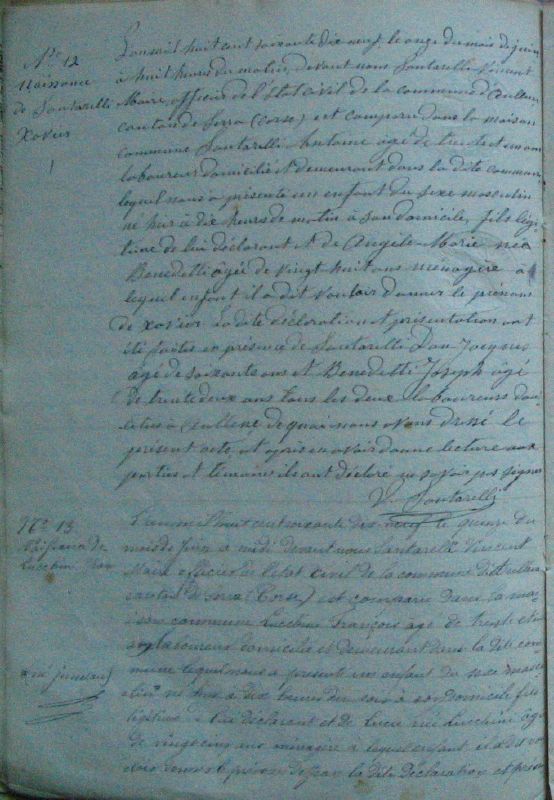 No 12
Naissance
de Santarelli
Xavier
L'an mil huit cent soixante dix neuf, le onze du mois de juin
à huit heures du matin, devant nous Santarelli Vincent
Maire officier de l'état civil de la commune d'Aullene
canton de Serra (Corse) est comparu dans la maison
commune Santarelli Antoine âgé de trente et un ans
laboureur domicilié et demeurant dans la dite commune
lequel nous a présenté un enfant du sexe masculin
né hier à dix heures du matin à son domicile, fils légi
time de lui déclarant et de Angèle-Marie née
Benedetti agée de vingt huit ans ménagère à
lequel enfant il a dit vouloir donner le prénom
de Xavier. La dite déclaration et présentation ont
été faites en présence de Santarelli Don Jacques
âgé de soixante ans et Benedetti Joseph âgé
de trente deux ans tous les deux laboureurs domi
ciliés à Aullene, de quoi nous avons dressé le
présent acte, et après en avoir donné lecture aux
parties et témoins ils ont déclaré ne savoir pas signer
V. Santarelli
No 13
Naissance de
Lucchini
(né jumeau)
L'an mil huit cent soixante dix neuf le quinze du
mois de juin à midi devant nous Santarelli Vincent
Maire officier de l'état civil de la commune d'Aullene
canton de Serra (Corse) est comparu dans la mai
son commune Lucchini François âgé de trente
laboureur domicilié et demeurant dans la dite com
mune lequel nous a présenté un enfant du sexe mascu
lin né hier à dix heures du soir à son domicile fils
légitime de lui déclarant et de Lucie née Lucchini âgée
de vingt cinq ans ménagère à lequel enfant il a dit vou
loir donner le prénom de la dite déclaration et présen